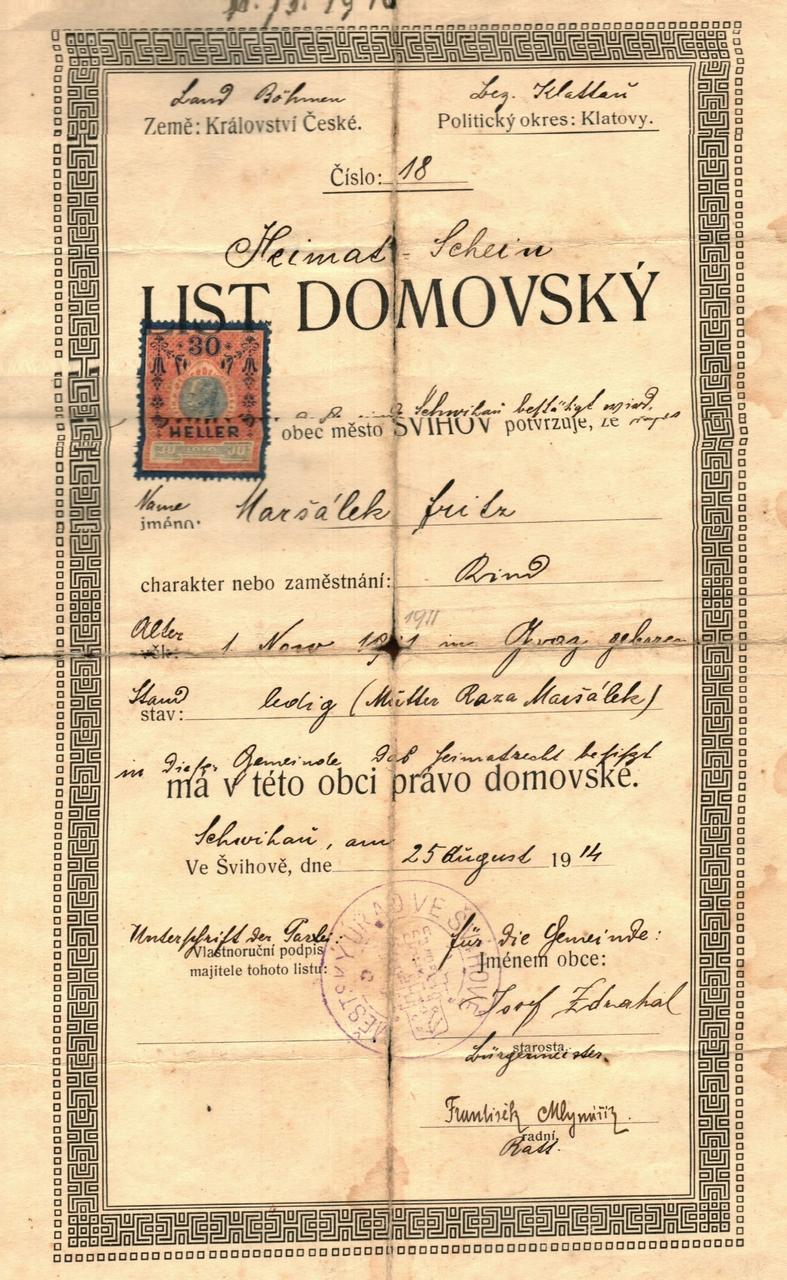 Land Böhmen
Bez. Klattau
Země: Království České.
Politický okres: Klatovy.
Číslo: 18
Heimat-Schein
LIST DOMOVSKÝ
30
HELLER
Schwihau bestätigt wird,
obec město ŠVIHOV potvrzuje, že
Name
jméno: Maršálek Fritz
charakter nebo zaměstnání: Kind
1911
Alter
věk: 1 Nov 1911 in Prag geboren
Stand
stav: ledig (Mutter Raza Maršálek)
in dieser Gemeinde das Heimatrecht besitzt
má v této obci právo domovské.
Schwihau, am
Ve Švihově, dne 25 August 1914
Unterschrift der Partei:
für die Gemeinde:
Vlastnoruční podpis
majitele tohoto listu:
Jménem obce:
MĚSTSKÝ ÚŘAD VE ŠVIHOVĚ
Josef Zdrahal
starosta.
Bürgermeister.
František Mlynářík
radní.
Rath.